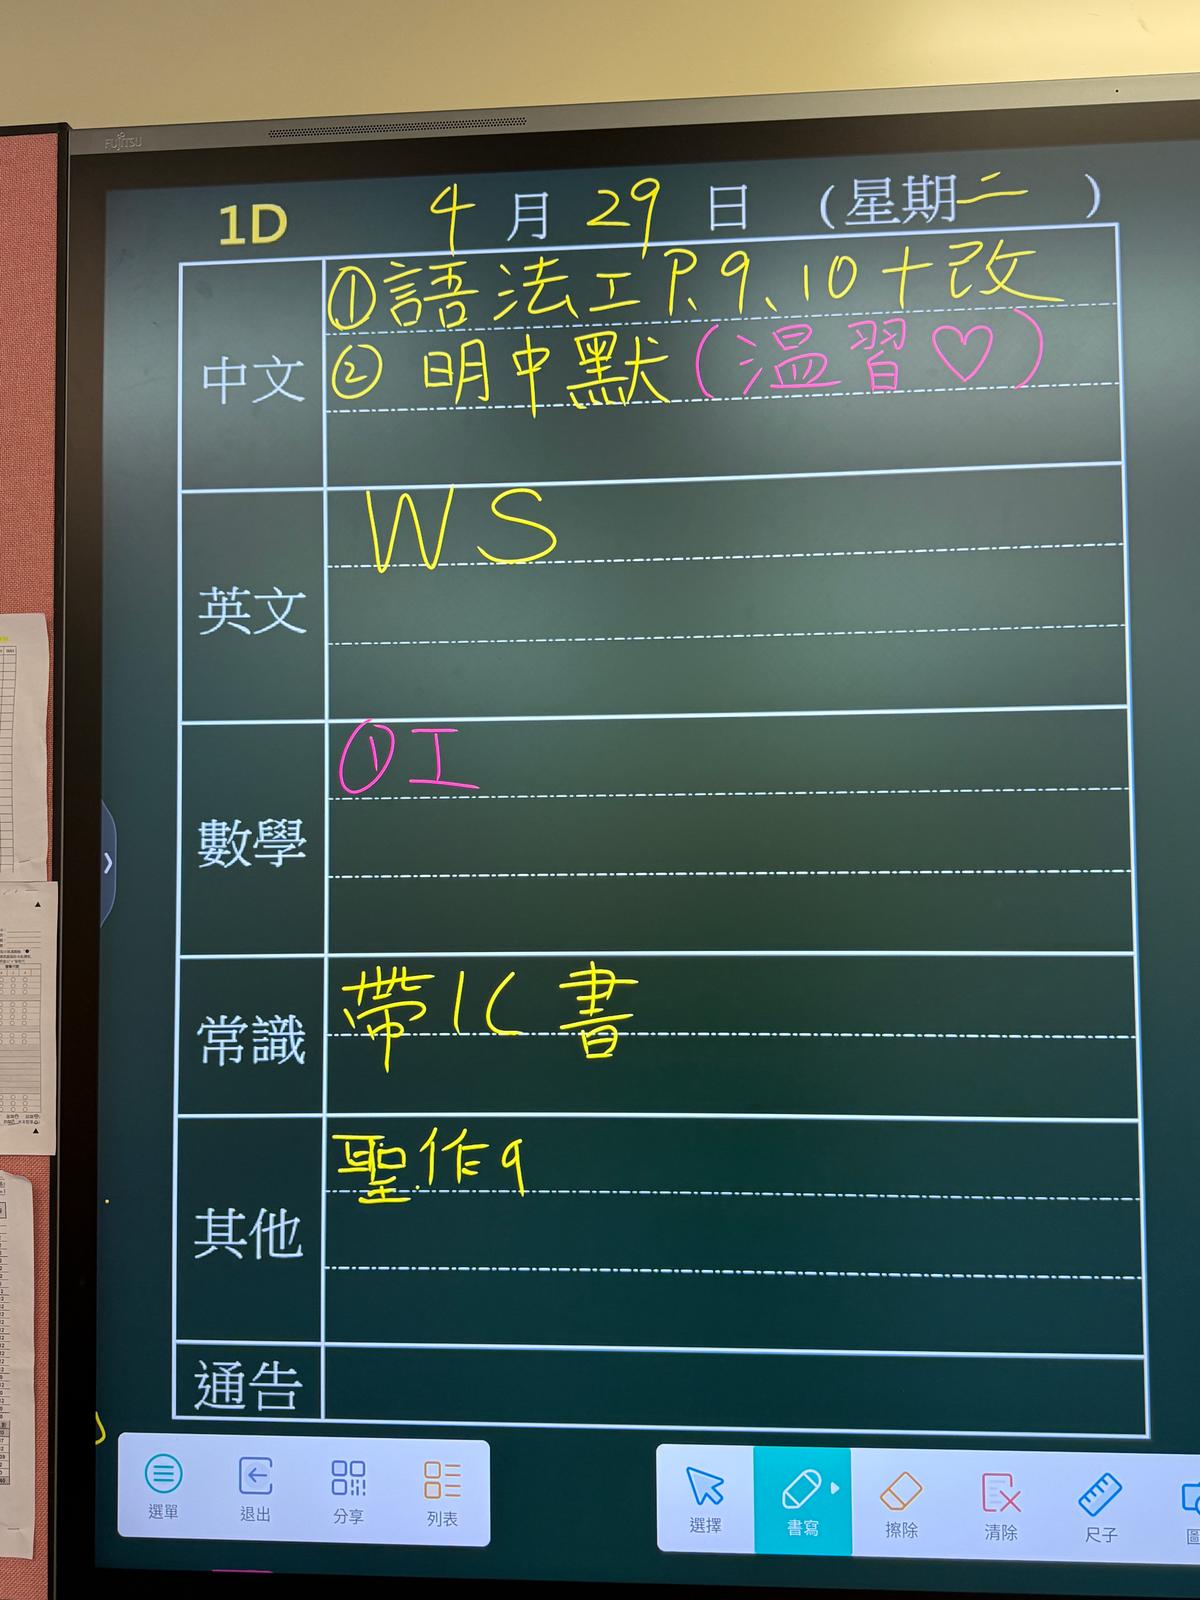 FUJITSU
1D 4月29日(星期二)
中文
①語法工P.9、10+改
②明中默(溫習♡)
英文
WS
數學
①工
常識
帶1C書
其他
聖.作9
通告
選單 退出 分享 列表 選擇 書寫 擦除 清除 尺子